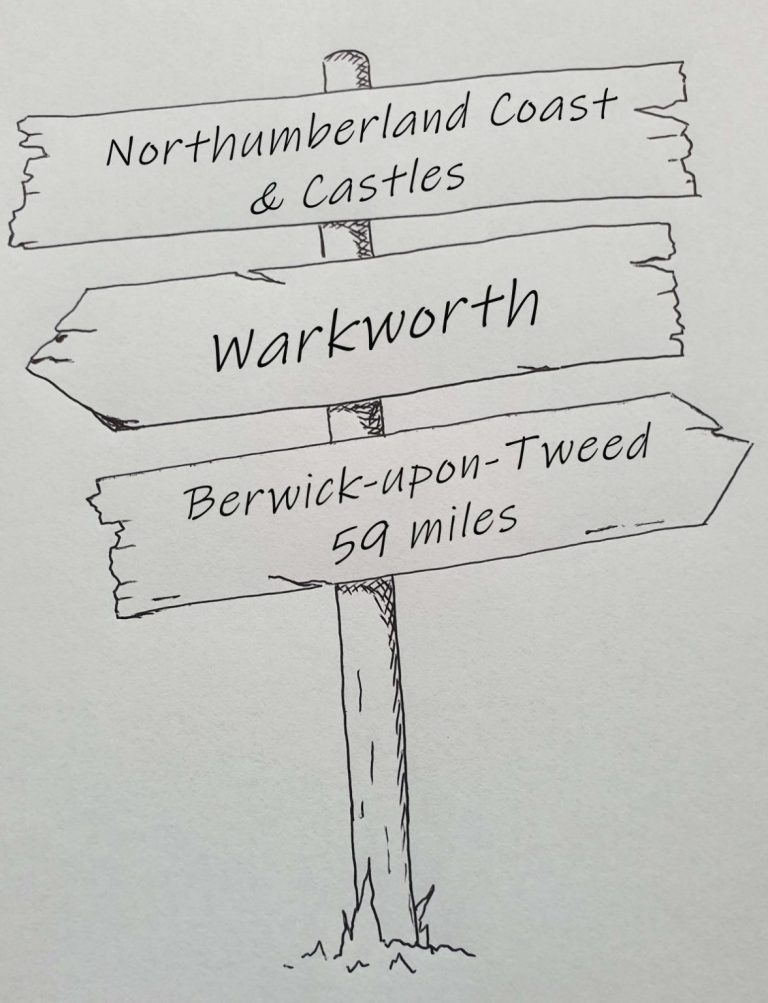 Northumberland Coast
& Castles
Warkworth
Berwick-upon-Tweed
59 miles